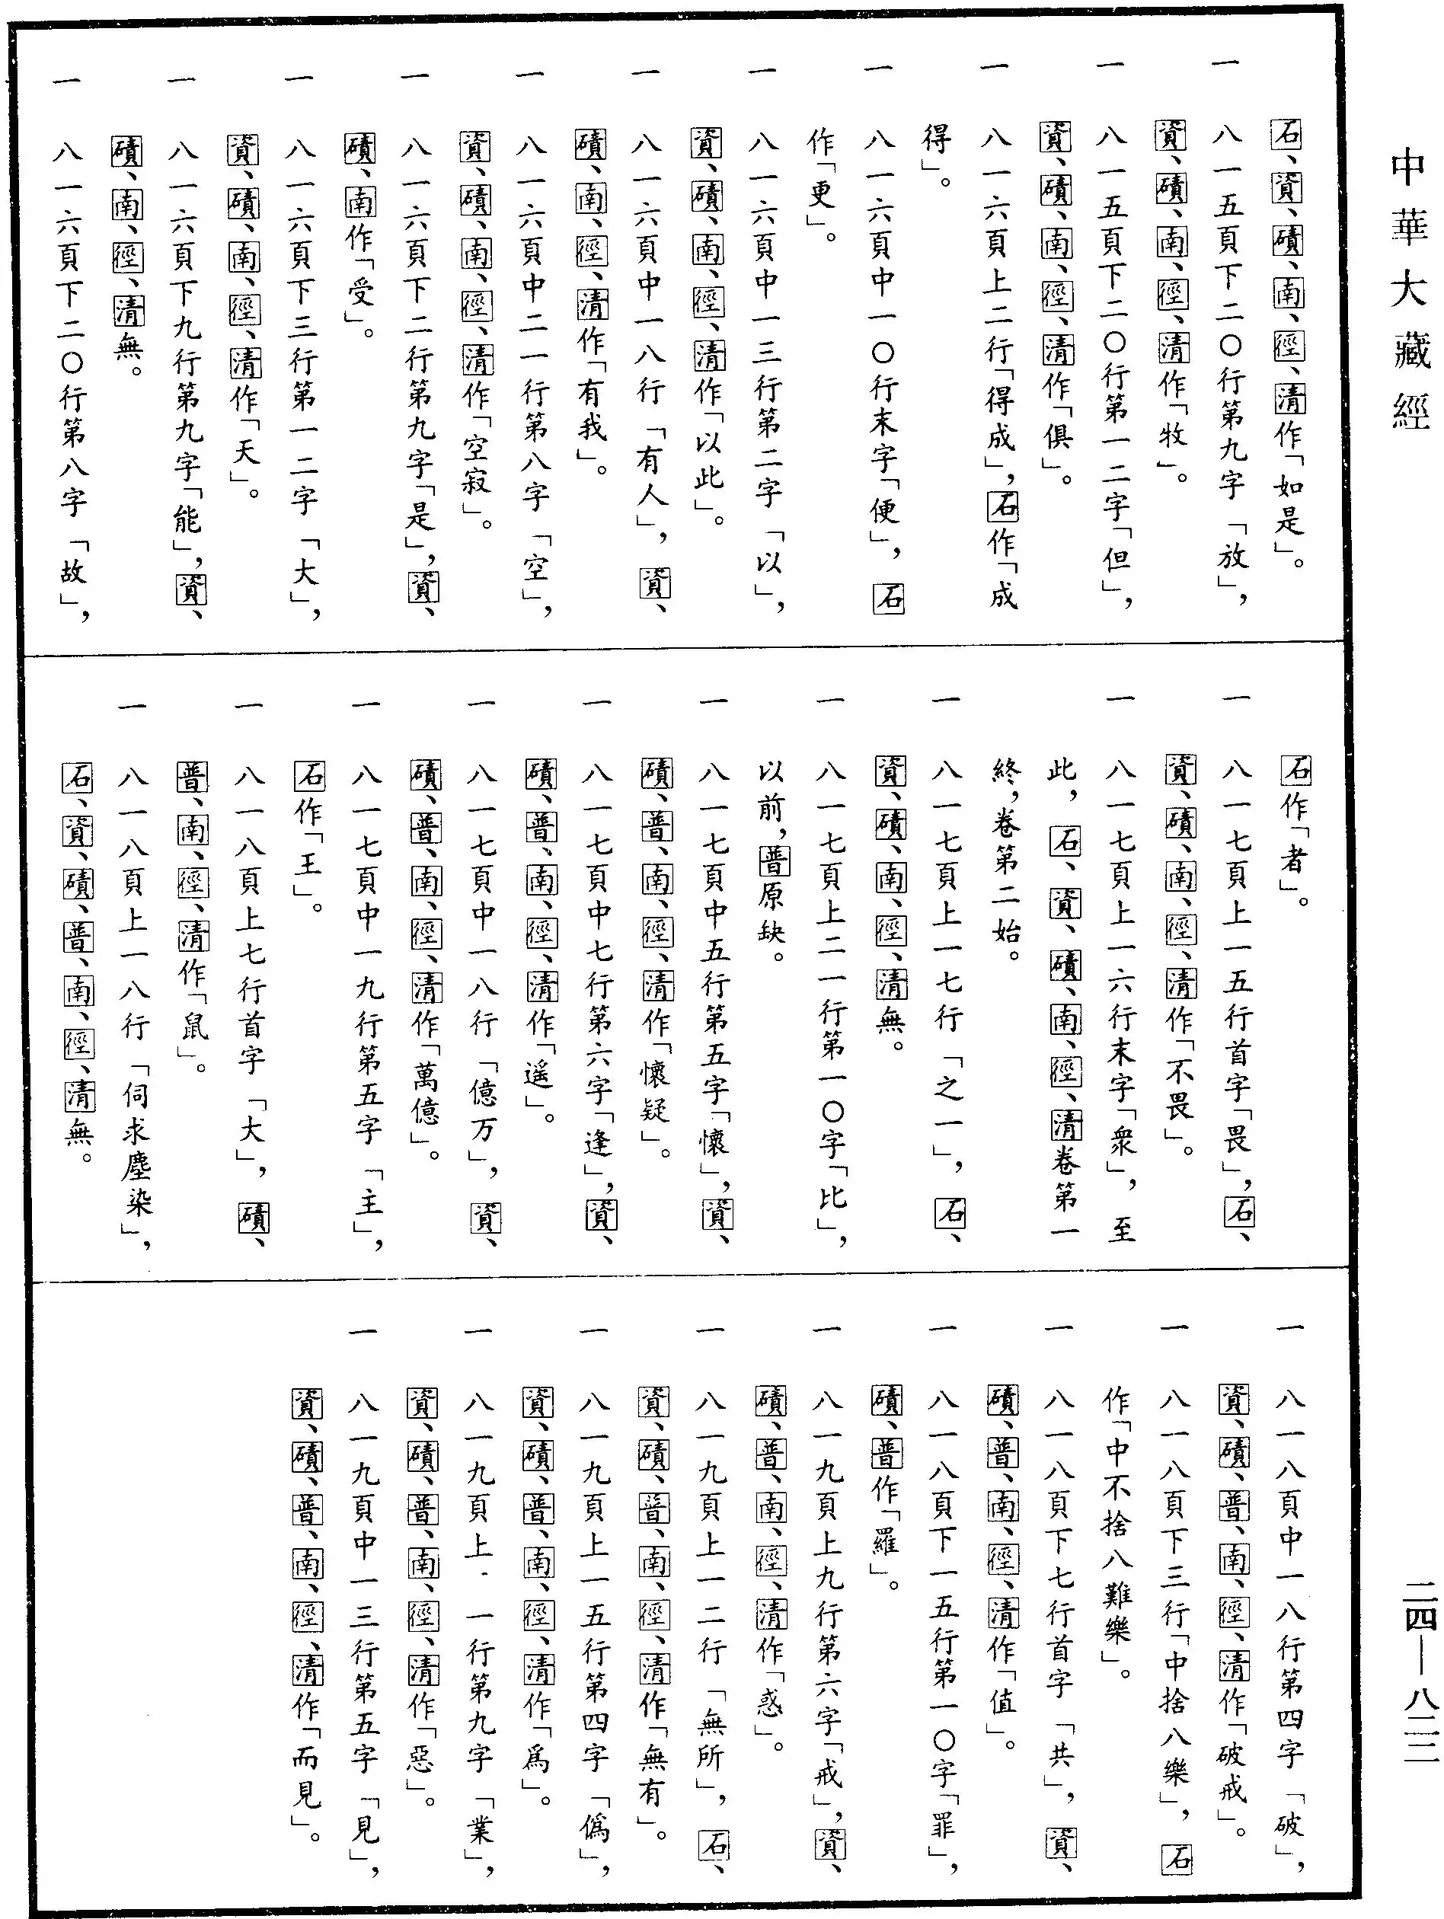 中華大藏經
石、資、磧、南、徑、清作「如是」。
一 八一五頁下二〇行第九字「放」，
資、磧、南、徑、清作「牧」。
一 八一五頁下二〇行第一二字「但」，
資、磧、南、徑、清作「俱」。
一 八一六頁上二行「得成」，石作「成
得」。
一 八一六頁中一〇行末字「便」，石
作「更」。
一 八一六頁中一三行第二字「以」，
資、磧、南、徑、清作「以此」。
一 八一六頁中一八行「有人」，資、
磧、南、徑、清作「有我」。
一 八一六頁中二一行第八字「空」，
資、磧、南、徑、清作「空寂」。
一 八一六頁下二行第九字「是」，資、
磧、南作「受」。
一 八一六頁下三行第一二字「大」，
資、磧、南、徑、清作「天」。
一 八一六頁下九行第九字「能」，資、
磧、南、徑、清無。
一 八一六頁下二〇行第八字「故」，
石作「者」。
一 八一七頁上一五行首字「畏」，石、
資、磧、南、徑、清作「不畏」。
一 八一七頁上一六行末字「衆」，至
此，石、資、磧、南、徑、清卷第一
終，卷第二始。
一 八一七頁上一七行「之一」，石、
資、磧、南、徑、清無。
一 八一七頁上二一行第一〇字「比」，
以前，普原缺。
一 八一七頁中五行第五字「懷」，資、
磧、普、南、徑、清作「懷疑」。
一 八一七頁中七行第六字「逢」，資、
磧、普、南、徑、清作「遥」。
一 八一七頁中一八行「億万」，資、
磧、普、南、徑、清作「萬億」。
一 八一七頁中一九行第五字「主」，
石作「王」。
一 八一八頁上七行首字「大」，磧、
普、南、徑、清作「鼠」。
一 八一八頁上一八行「伺求塵染」，
石、資、磧、普、南、徑、清無。
一 八一八頁中一八行第四字「破」，
資、磧、普、南、徑、清作「破戒」。
一 八一八頁下三行「中捨八樂」，石
作「中不捨八難樂」。
一 八一八頁下七行首字「共」，資、
磧、普、南、徑、清作「值」。
一 八一八頁下一五行第一〇字「罪」，
磧、普作「羅」。
一 八一九頁上九行第六字「戒」，資、
磧、普、南、徑、清作「惑」。
一 八一九頁上一二行「無所」，石、
資、磧、普、南、徑、清作「無有」。
一 八一九頁上一五行第四字「僞」，
資、磧、普、南、徑、清作「爲」。
一 八一九頁上·一行第九字「業」，
資、磧、普、南、徑、清作「惡」。
一 八一九頁中一三行第五字「見」，
資、磧、普、南、徑、清作「而見」。
二四—八二二